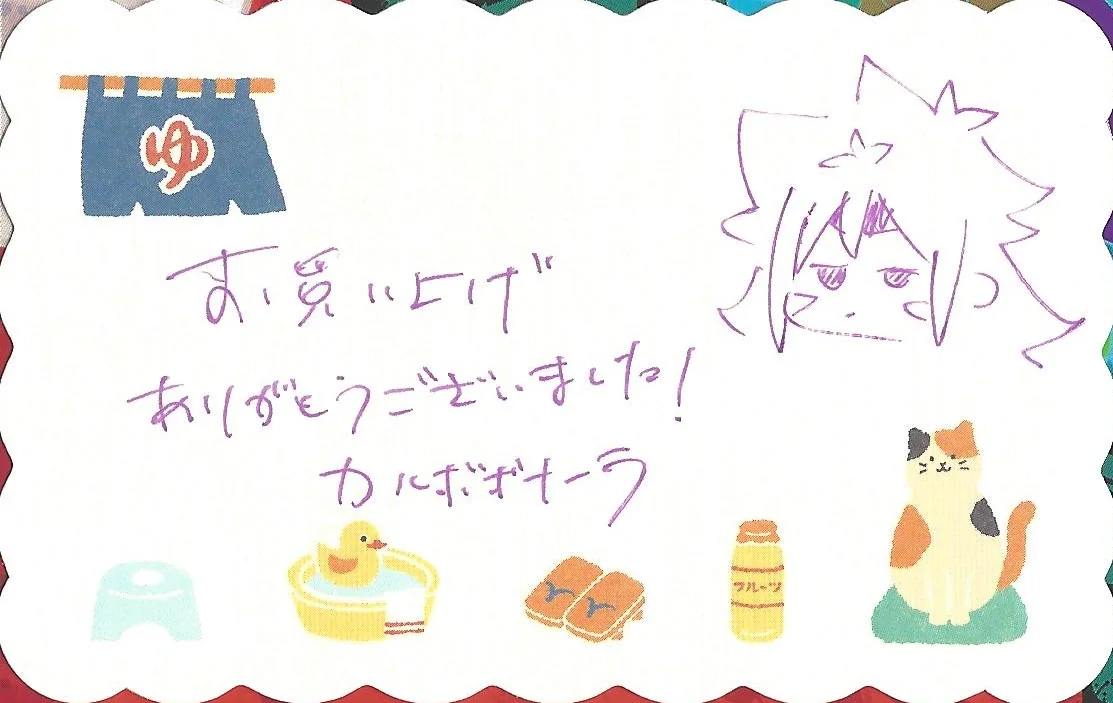 ゆ
お買い上げ
ありがとうございました!
カルボボナーラ
フルーツ